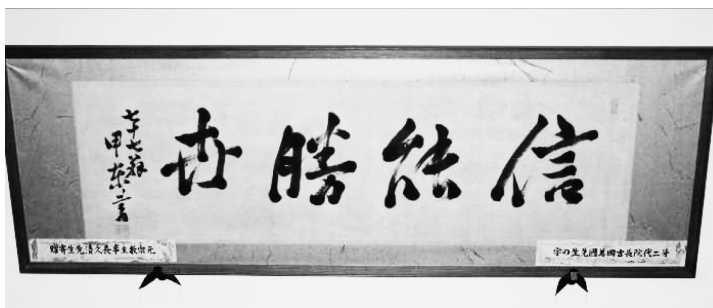 信能勝世
七十七
甲東書
第二代院長吉岡美國先生の字
元宗教主事長久清先生寄贈